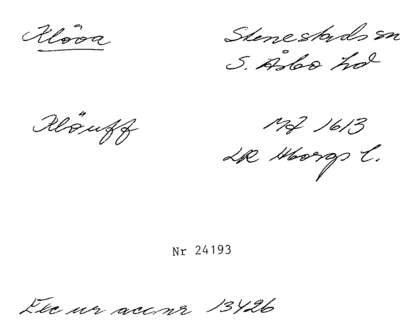 Klöva Stenestads sn
S. Åsbo hd
Klöuff MJ 1613
LR Hborgs l.
Nr 24193
Exc ur accnr 13426